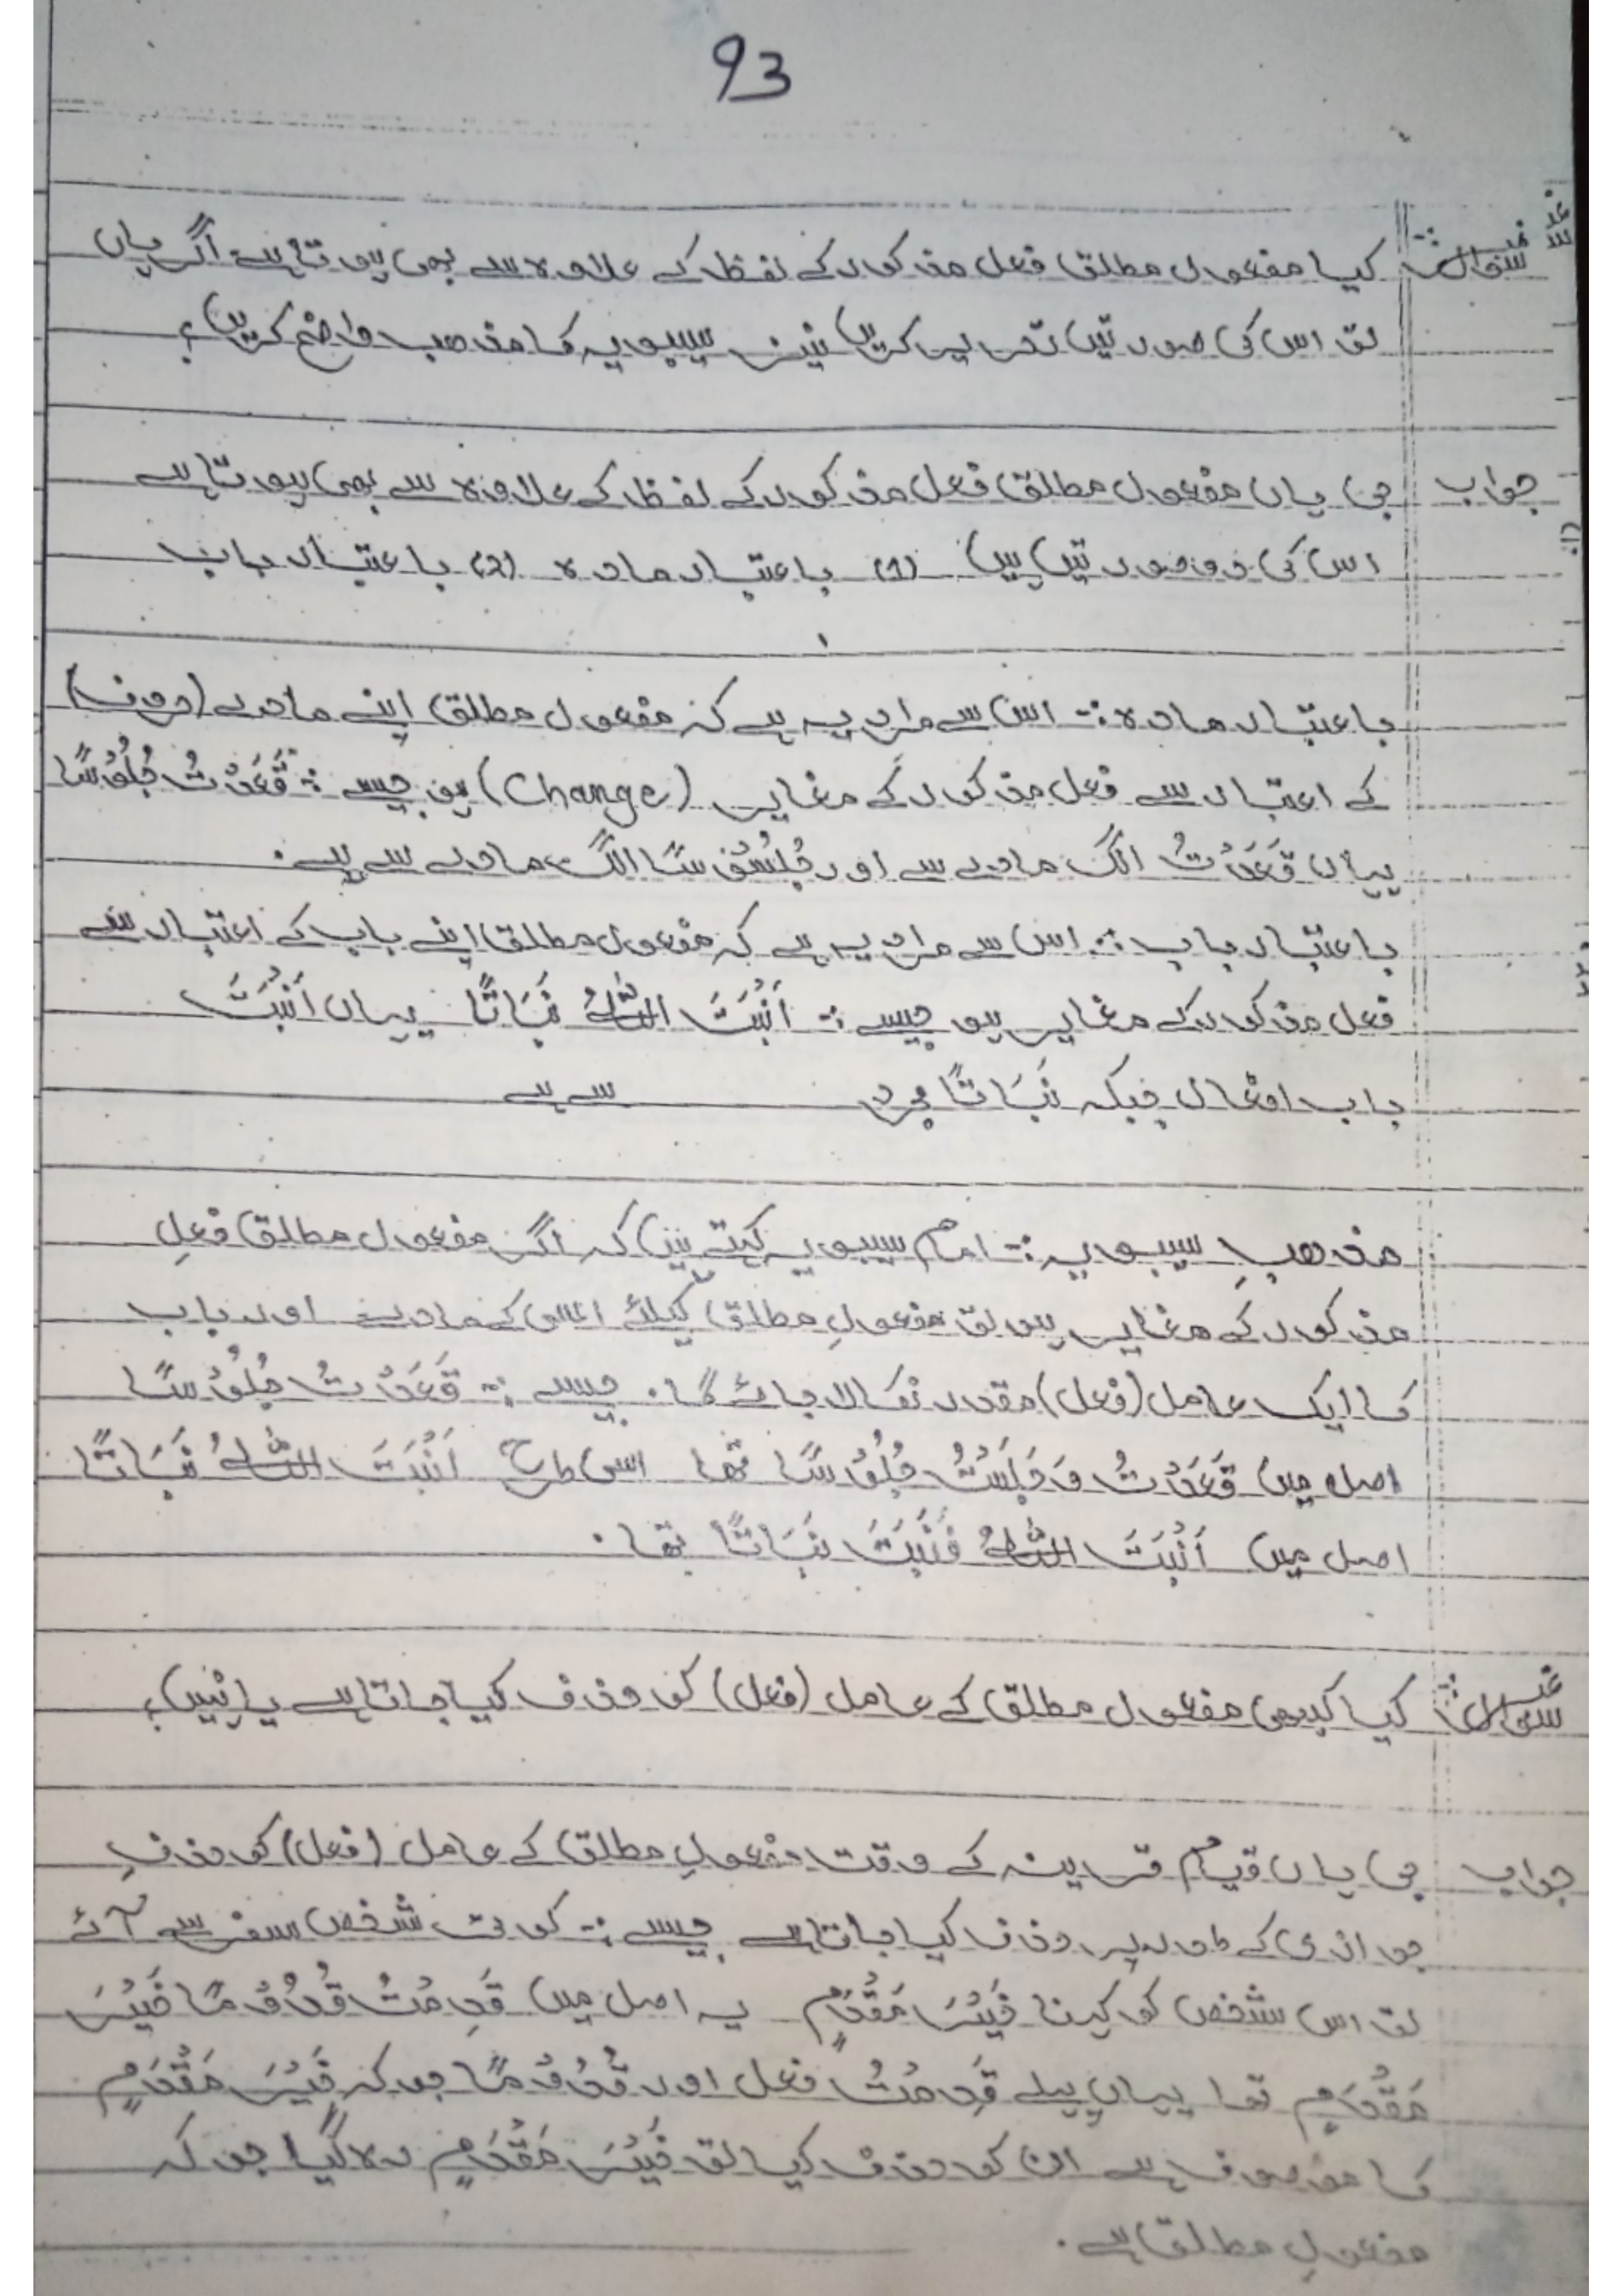 93
سوال :- کیا مفعول مطلق فعل مذکور کے لفظ کے علاوہ سے بھی ہوتا ہے اگر ہاں
تو اس کی صورتیں تحریر کریں نیز سیبویہ کا مذھب واضح کریں؟
جواب جی ہاں مفعول مطلق فعل مذکور کے لفظ کے علاوہ سے بھی ہوتا ہے
اس کی دو صورتیں ہیں (1) باعتبار مادہ (2) باعتبار باب
باعتبار مادہ :- اس سے مراد یہ ہے کہ مفعول مطلق اپنے مادے (حروف)
کے اعتبار سے فعل مذکور کے مغایر (Change) ہو جیسے :- قَعَدْتُ جُلُوْسًا
یہاں قَعَدْتُ الگ مادے سے اور جُلُوْسًا الگ مادے سے ہے۔
باعتبار باب :- اس سے مراد یہ ہے کہ مفعول مطلق اپنے باب کے اعتبار سے
فعل مذکور کے مغایر ہو جیسے :- اَنْبَتَ اللّٰهُ نَبَاتًا یہاں اَنْبَتَ
باب افعال جبکہ نَبَاتًا مجرد سے ہے
مذھبِ سیبویہ :- امام سیبویہ کہتے ہیں کہ اگر مفعول مطلق فعلِ
مذکور کے مغایر ہو تو مفعولِ مطلق کیلئے اسی کے مادے اور باب
کا ایک عامل (فعل) مقدر نکالا جائے گا۔ جیسے :- قَعَدْتُ جُلُوْسًا
اصل میں قَعَدْتُ وَجَلَسْتُ جُلُوْسًا تھا اسی طرح اَنْبَتَ اللّٰهُ نَبَاتًا
اصل میں اَنْبَتَ اللّٰهُ فَنَبَتَ نَبَاتًا تھا۔
سوال :- کیا کبھی مفعول مطلق کے عامل (فعل) کو حذف کیا جاتا ہے یا نہیں؟
جواب جی ہاں قیام قرینہ کے وقت مفعولِ مطلق کے عامل (فعل) کو حذفِ
جوازی کے طور پر حذف کیا جاتا ہے جیسے :- کوئی شخص سفر سے آئے
تو اس شخص کو کہنا خَیْرَ مَقْدَمٍ یہ اصل میں قَدِمْتَ قُدُوْمًا خَیْرَ
مَقْدَمٍ تھا یہاں پہلے قَدِمْتَ فعل اور قُدُوْمًا جو کہ خَیْرَ مَقْدَمٍ
کا موصوف ہے ان کو حذف کیا تو خَیْرَ مَقْدَمٍ رہ گیا جو کہ
مفعولِ مطلق ہے۔